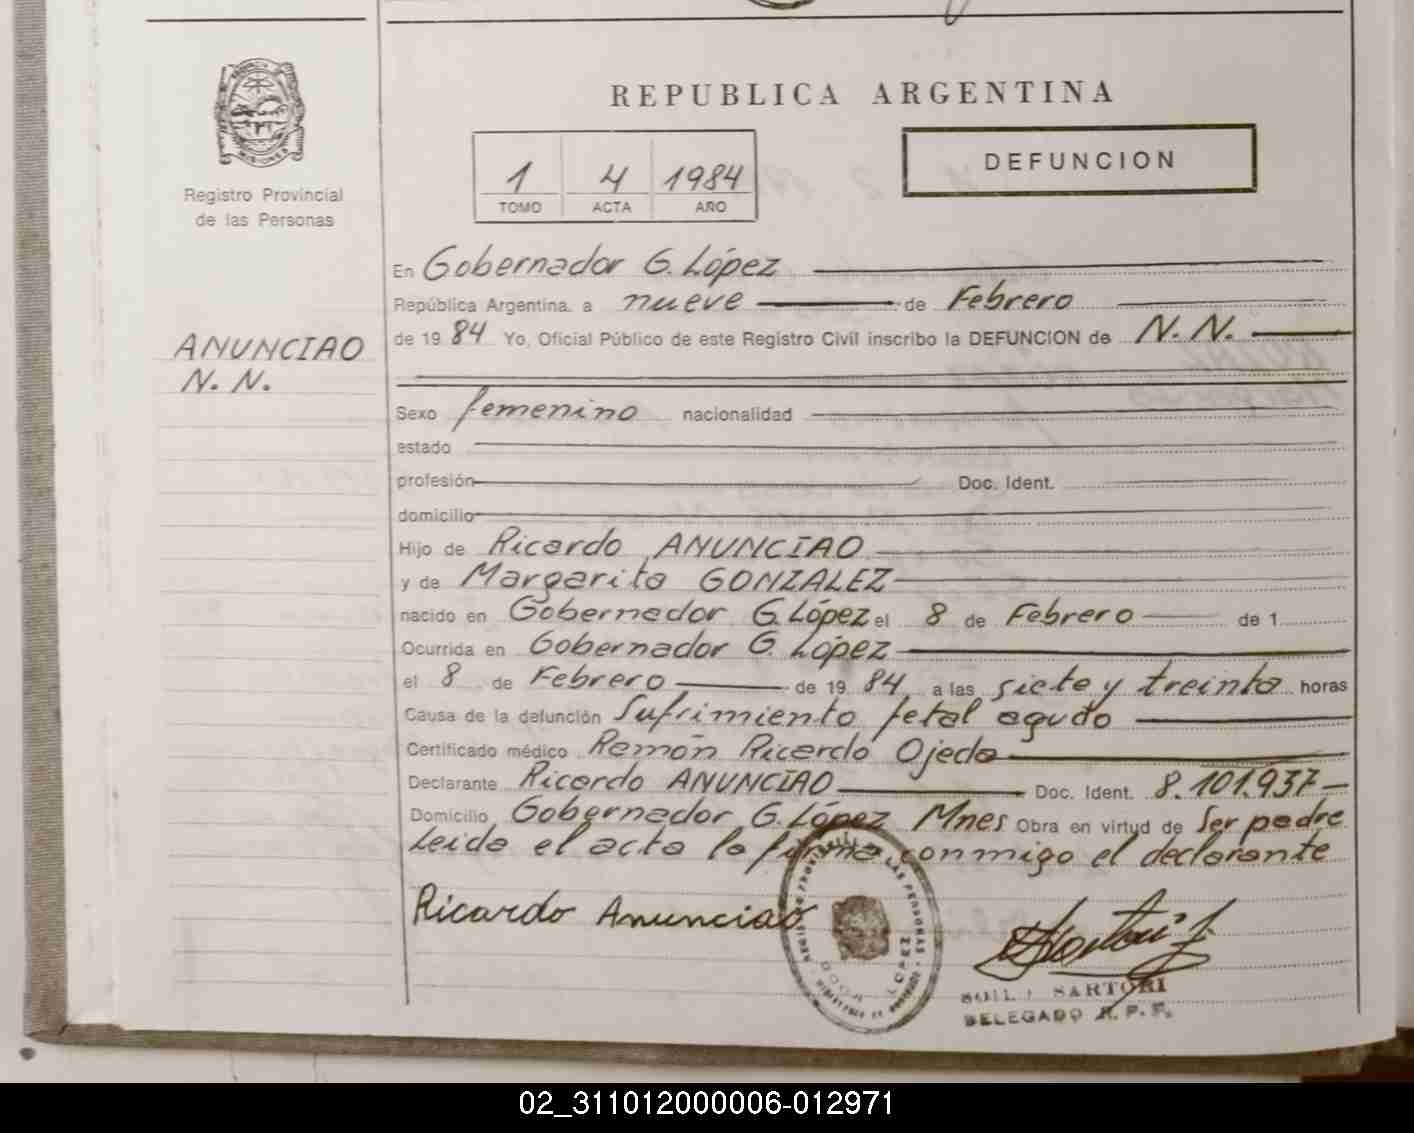 REPUBLICA ARGENTINA
MISIONES
Registro Provincial
de las Personas
1 4 1984
TOMO ACTA AÑO
DEFUNCION
ANUNCIAO
N. N.
En Gobernador G. López
República Argentina, a nueve de Febrero
de 1984 Yo, Oficial Público de este Registro Civil inscribo la DEFUNCION de N. N.
Sexo femenino nacionalidad
estado
profesión Doc. Ident.
domicilio
Hijo de Ricardo ANUNCIAO
y de Margarita GONZALEZ
nacido en Gobernador G. López el 8 de Febrero de 1
Ocurrida en Gobernador G. López
el 8 de Febrero de 1984 a las siete y treinta horas
Causa de la defunción Sufrimiento fetal agudo
Certificado médico Ramón Ricardo Ojeda
Declarante Ricardo ANUNCIAO Doc. Ident. 8.101.937
Domicilio Gobernador G. López Mnes Obra en virtud de Ser padre
Leida el acta la firma conmigo el declarante
Ricardo Anunciao
SARTORI
DELEGADO R. P. P.
02_311012000006-012971